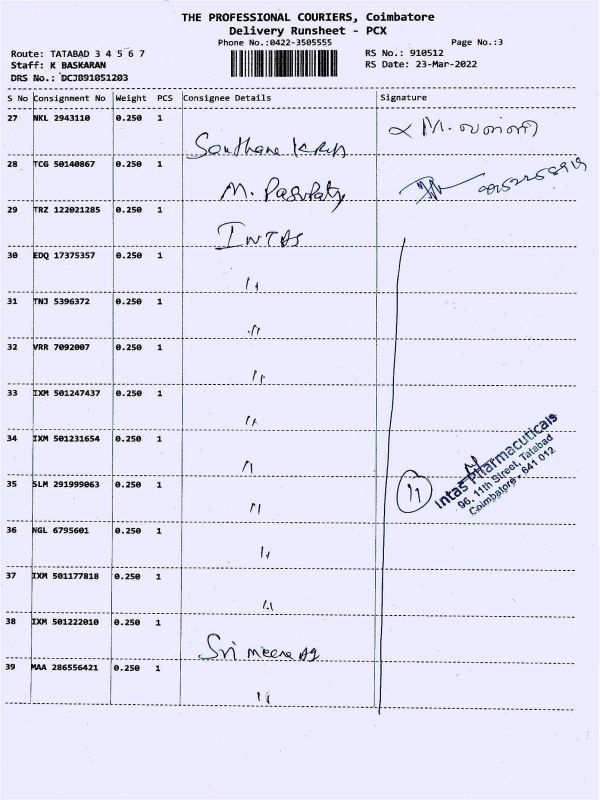 THE PROFESSIONAL COURIERS, Coimbatore
Delivery Runsheet - PCX
Phone No.:0422-3505555 Page No.:3
Route: TATABAD 3 4 5 6 7 RS No.: 910512
Staff: K BASKARAN RS Date: 23-Mar-2022
DRS No.: DCJB91051203
S No Consignment No Weight PCS Consignee Details Signature
27 NKL 2943110 0.250 1
28 TCG 50140867 0.250 1
M.
29 TRZ 122021285 0.250 1
INTAS
30 EDQ 17375357 0.250 1
11
31 TNJ 5396372 0.250 1
11
32 VRR 7092007 0.250 1
11
33 IXM 501247437 0.250 1
11
34 IXM 501231654 0.250 1
11
35 SLM 291999063 0.250 1
11
36 NGL 6795601 0.250 1
11
37 IXM 501177818 0.250 1
11
38 IXM 501222010 0.250 1
Sri meena Ag
39 MAA 286556421 0.250 1
11
11
Intas Pharmacuticals
96, 11th Street, Tatabad
Coimbatore - 641 012